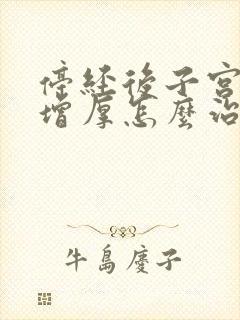 停经後子宫
增厚怎麼治
牛島慶子